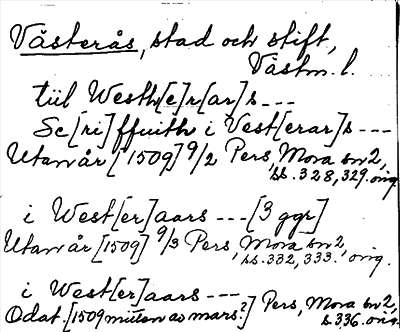 Västerås, stad och stift,
Västm. l.
till Westh[e]r[ar]s ---
Sc[ri]ffuith i Vest[erar]s ---
Utan år [1509] 9/2 Pers, Mora sn 2,
ss. 328, 329. orig.
i West[er]aars --- [3 ggr]
Utan år [1509] 9/3 Pers, Mora sn 2,
ss. 332, 333. orig.
i West[er]aars ---
Odat. [1509 mitten av mars?] Pers, Mora sn 2,
s. 336. orig.